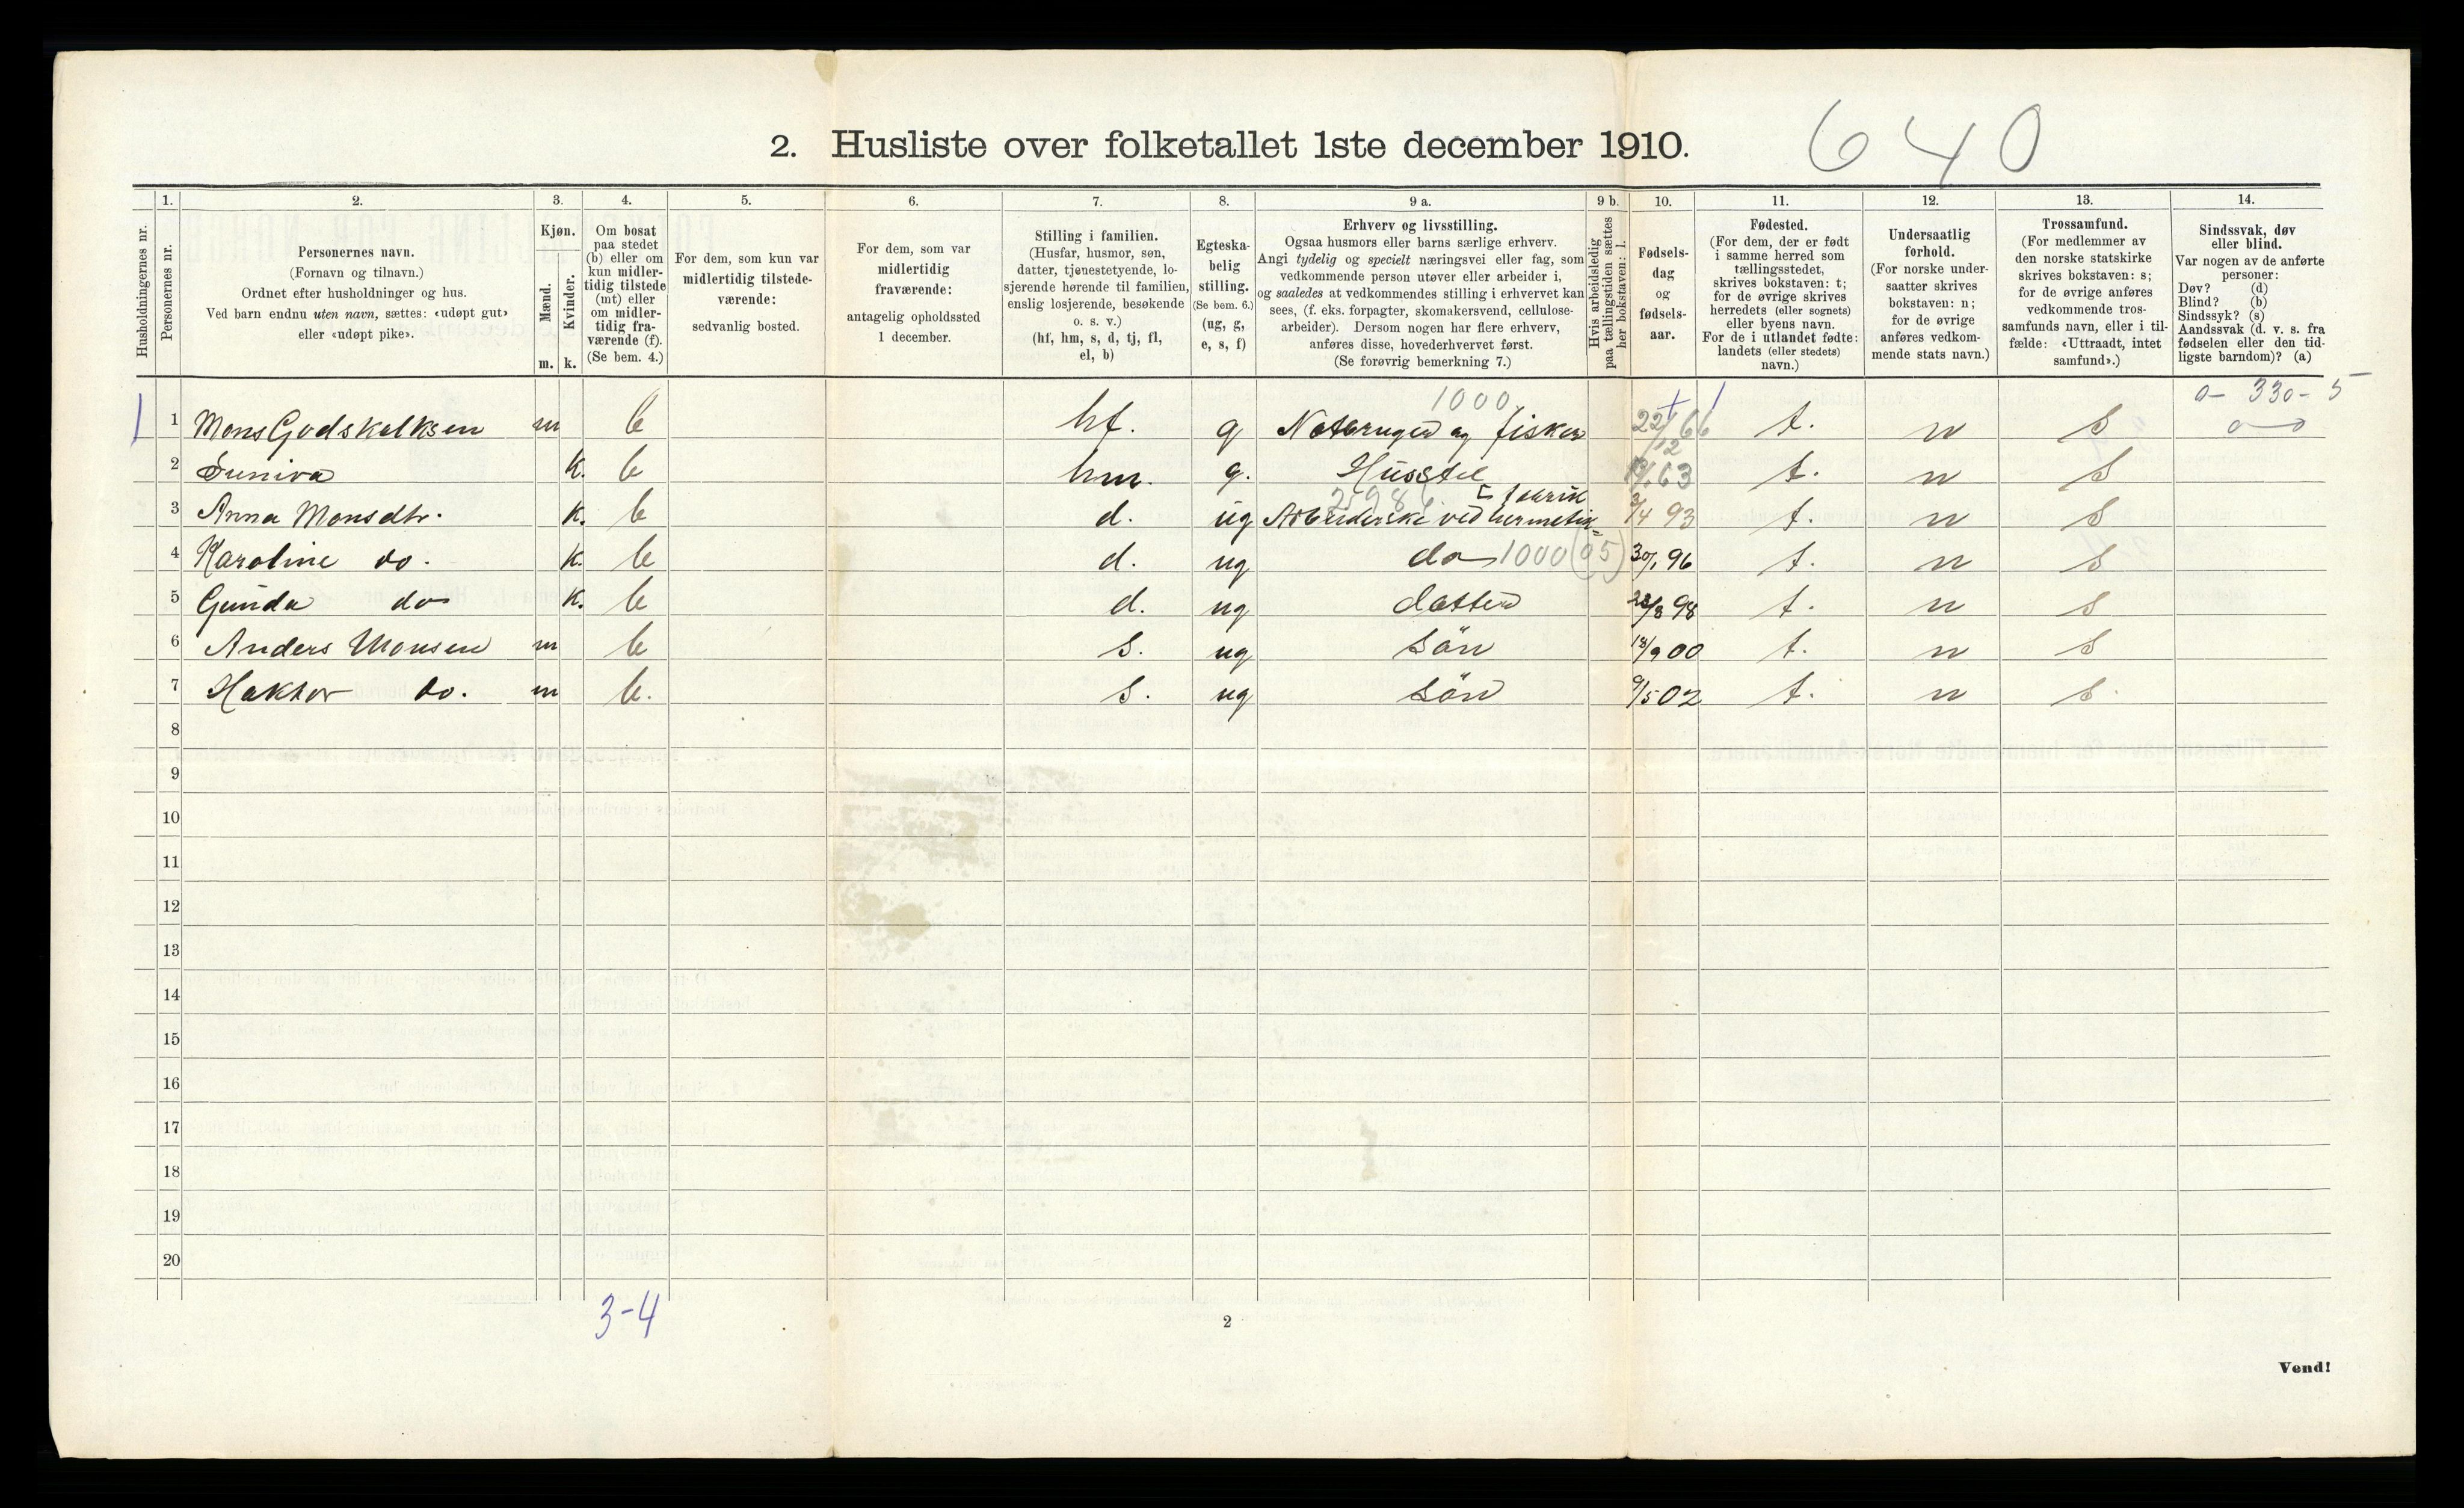 640
2. Husliste over folketallet 1ste december 1910.
Husholdningernes nr.
1.
Personernes nr.
2.
Personernes navn.
(Fornavn og tilnavn.)
Ordnet efter husholdninger og hus.
Ved barn endnu uten navn, sættes: «udøpt gut»
eller «udøpt pike».
3.
Kjøn.
Mænd.
Kvinder.
m. k.
4.
Om bosat
paa stedet
(b) eller om
kun midler-
tidig tilstede
(mt) eller
om midler-
tidig fra-
værende (f).
(Se bem. 4.)
5.
For dem, som kun var
midlertidig tilstede-
værende:
sedvanlig bosted.
6.
For dem, som var
midlertidig
fraværende:
antagelig opholdssted
1 december.
7.
Stilling i familien.
(Husfar, husmor, søn,
datter, tjenestetyende, lo-
sjerende hørende til familien,
enslig losjerende, besøkende
o. s. v.)
(hf, hm, s, d, tj, fl,
el, b)
8.
Egteska-
belig
stilling.
(Se bem. 6.)
(ug, g,
e, s, f)
9 a.
Erhverv og livsstilling.
Ogsaa husmors eller barns særlige erhverv.
Angi tydelig og specielt næringsvei eller fag, som
vedkommende person utøver eller arbeider i,
og saaledes at vedkommendes stilling i erhvervet kan
sees, (f. eks. forpagter, skomakersvend, cellulose-
arbeider). Dersom nogen har flere erhverv,
anføres disse, hovederhvervet først.
(Se forøvrig bemerkning 7.)
9 b.
Hvis arbeidsledig
paa tællingstiden sættes
her bokstaven: l.
10.
Fødsels-
dag
og
fødsels-
aar.
11.
Fødested.
(For dem, der er født
i samme herred som
tællingsstedet,
skrives bokstaven: t;
for de øvrige skrives
herredets (eller sognets)
eller byens navn.
For de i utlandet fødte:
landets (eller stedets)
navn.)
12.
Undersaatlig
forhold.
(For norske under-
saatter skrives
bokstaven: n;
for de øvrige
anføres vedkom-
mende stats navn.)
13.
Trossamfund.
(For medlemmer av
den norske statskirke
skrives bokstaven: s;
for de øvrige anføres
vedkommende tros-
samfunds navn, eller i til-
fælde: «Uttraadt, intet
samfund».)
14.
Sindssvak, døv
eller blind.
Var nogen av de anførte
personer:
Døv? (d)
Blind? (b)
Sindssyk? (s)
Aandssvak (d. v. s. fra
fødselen eller den tid-
ligste barndom)? (a)
1000 0- 330- 5
1 1 Mons Godskalksen m b hf. g Notbruger og fisker 22/12 66 t. n s
2 Suniva k. b hm. g. Husstel 63 t. n s
3 Anna Monsdtr. k. b d. ug Arbeiderske ved hermetik- fabrik 3/4 93 t. n s
4 Karoline do. k. b d. ug do 1000 (05) 30/1 96 t. n s
5 Gunda do k. b d. ug datter 98 t. n s
6 Anders Monsen m b s. ug sön 18/9 00 t. n s
7 Haktor do. m b. s. ug sön 9/5 02 t. n s.
8
9
10
11
12
13
14
15
16
17
18
19
20
3-4
2
Vend!